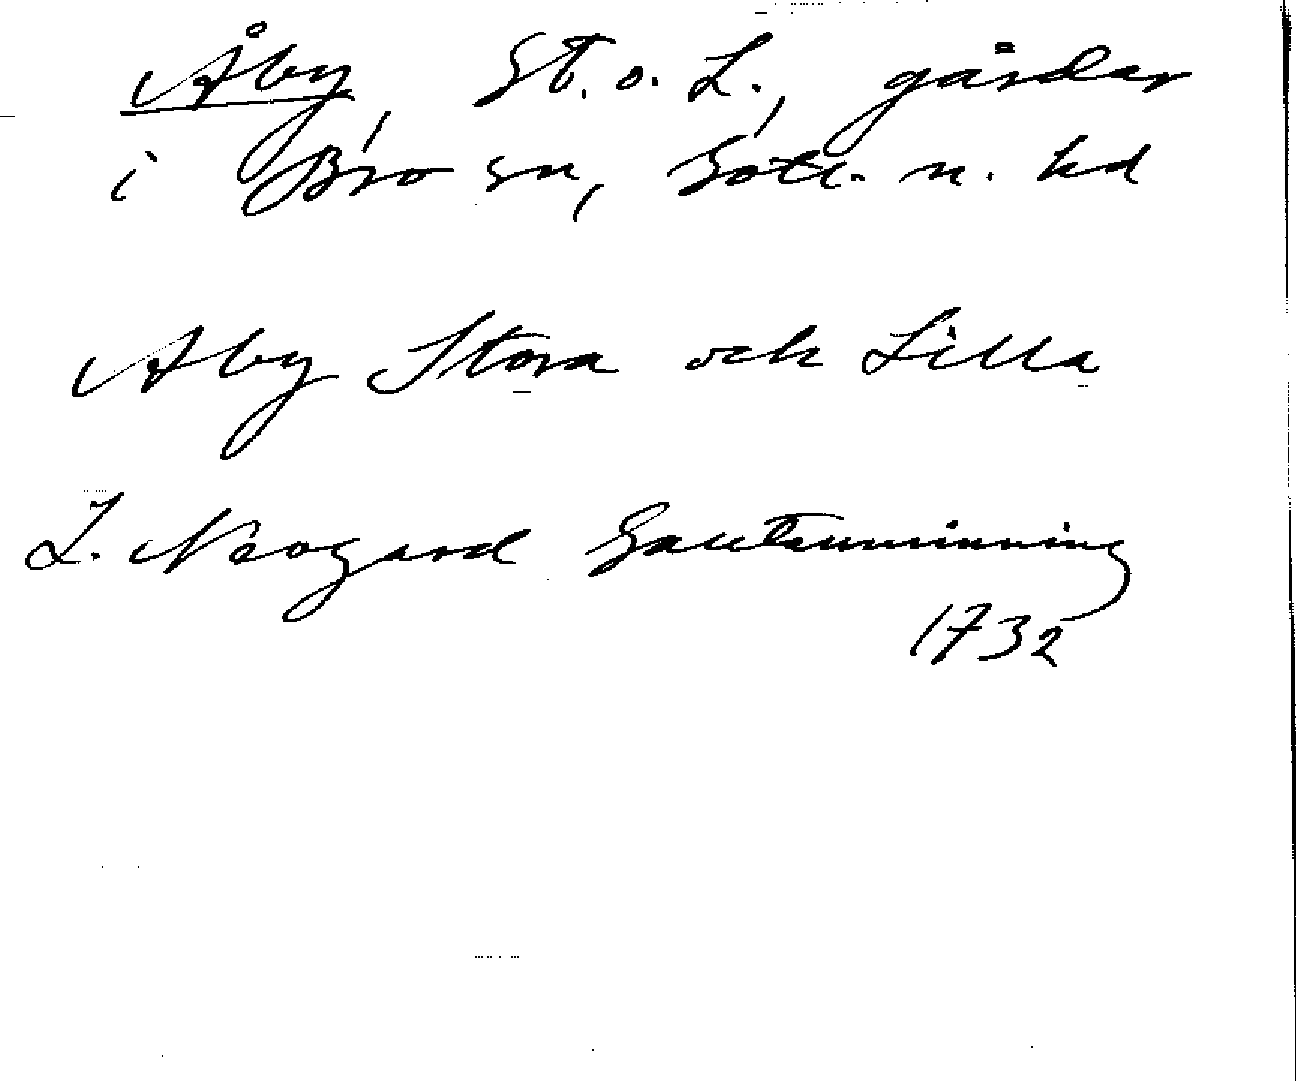 Åby, St. o. L., gårdar
i Bro sn, Gotl. n. hd
Aby Stora och Lilla
L. Neogard Gautauminning
1732